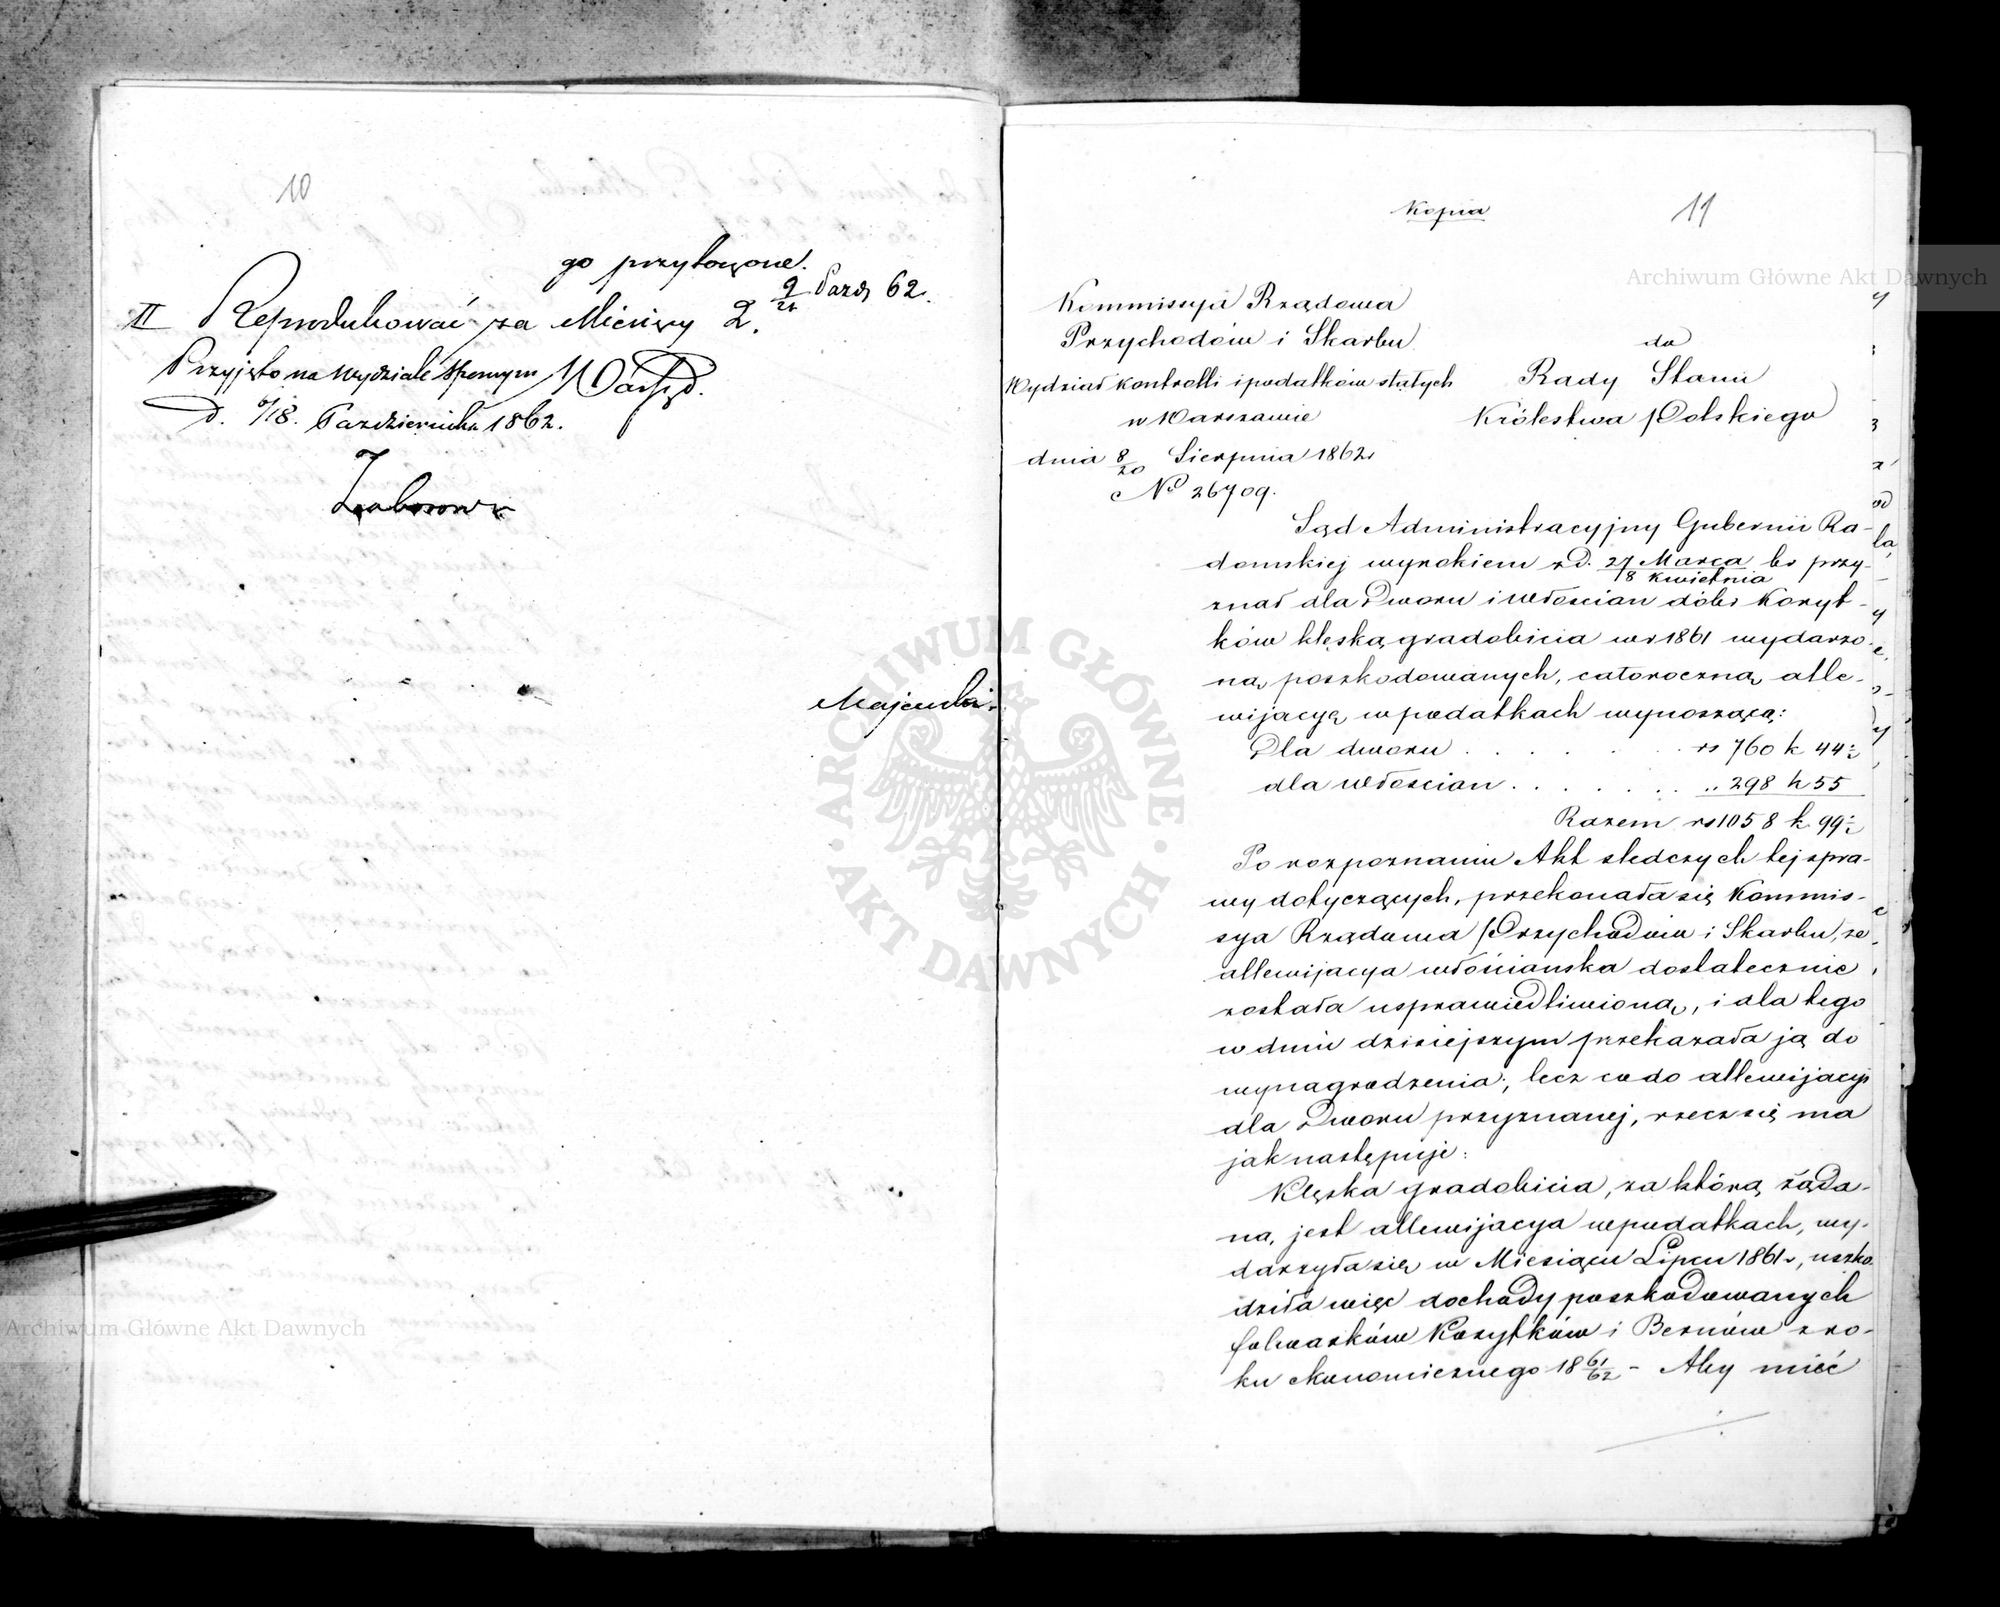 10
go przyłączone.
9/21 Paźd 62.
II Reprodukować za Miesięcy 2.
Przyjęto na Wydziale Spornym
d. 6/18. Października 1862.
Majewski
Kopia
11
Kommissyja Rządowa
Przychodów i Skarbu
Wydział kontrolli i podatków stałych
w Warszawie
dnia 8/20 Sierpnia 1862.
No 26709.
do
Rady Stanu
Królestwa Polskiego
Sąd Administracyjny Gubernii Ra-
domskiej wyrokiem z d. 27 Marca/8 kwietnia br przy-
znał dla Dworu i włościan dóbr Koryt-
ków klęską gradobicia w r 1861 wydarzo-
ną poszkodowanych, całoroczną alle-
wijacyą w podatkach wynoszącą:
Dla dworu . . . . . . rs 760 k 44½
dla włościan . . . . . . „ 298 k 55
Razem rs 1058 k. 99½
Po rozpoznaniu Akt śledczych tej spra-
wy dotyczących, przekonała się Kommis-
sya Rządowa Przychodów i Skarbu, że
allewijacya włościańska dostatecznie
została usprawiedliwioną, i dla tego
w dniu dzisiejszym przekazała ją do
wynagrodzenia; lecz co do allewijacyi
dla Dworu przyznanej, rzecz się ma
jak następuje:
Klęska gradobicia, za którą żąda-
na, jest allewijacya w podatkach, wy-
darzyła się w Miesiącu Lipcu 1861 r, uszko-
dziła więc dochody poszkodowanych
folwarków Korytków i Bernów z ro-
ku ekonomicznego 1861/62 - Aby mieć
Archiwum Główne Akt Dawnych
ARCHIWUM GŁÓWNE · AKT DAWNYCH ·
Archiwum Główne Akt Dawnych